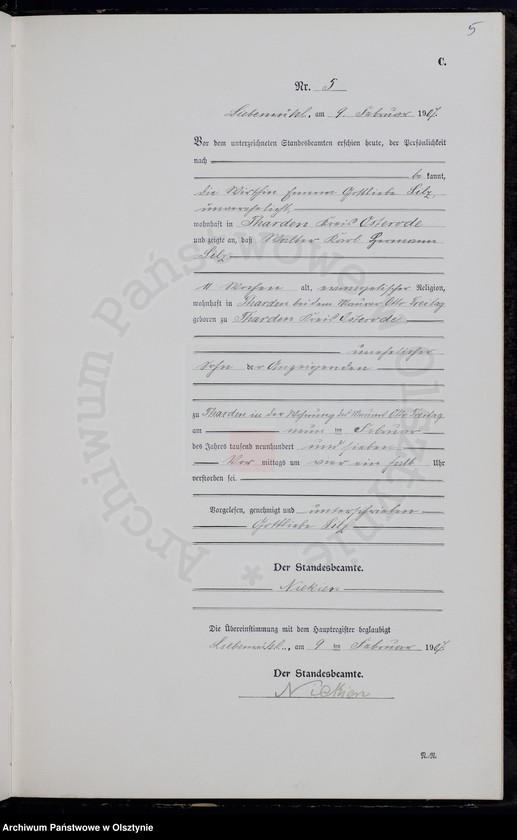 5
C.
Nr. 5
Liebemühl, am 9. Februar 1907.
Vor dem unterzeichneten Standesbeamten erschien heute, der Persönlichkeit
nach
be kannt,
die Wirthin Gottliebe Selz,
unverehelicht,
wohnhaft in Tharden Kreis Osterode
und zeigte an, daß Walter Karl Hermann
Selz
11 Wochen alt, evangelischer Religion,
wohnhaft in Tharden bei dem Maurer Otto Freitag
geboren zu Tharden Kreis Osterode
unehelicher
Sohn der Anzeigenden
zu Tharden in der Wohnung des Maurers Otto Freitag
am neun ten Februar
des Jahres tausend neunhundert und sieben
Vor mittags um vier ein halb Uhr
verstorben sei.
Vorgelesen, genehmigt und unterschrieben
Gottliebe Selz
Der Standesbeamte.
Niekien
Die Übereinstimmung mit dem Hauptregister beglaubigt
Liebemühl, am 9 ten Februar 1907.
Der Standesbeamte.
Niekien
N.N.
Archiwum Państwowe w Olsztynie *
Archiwum Państwowe w Olsztynie